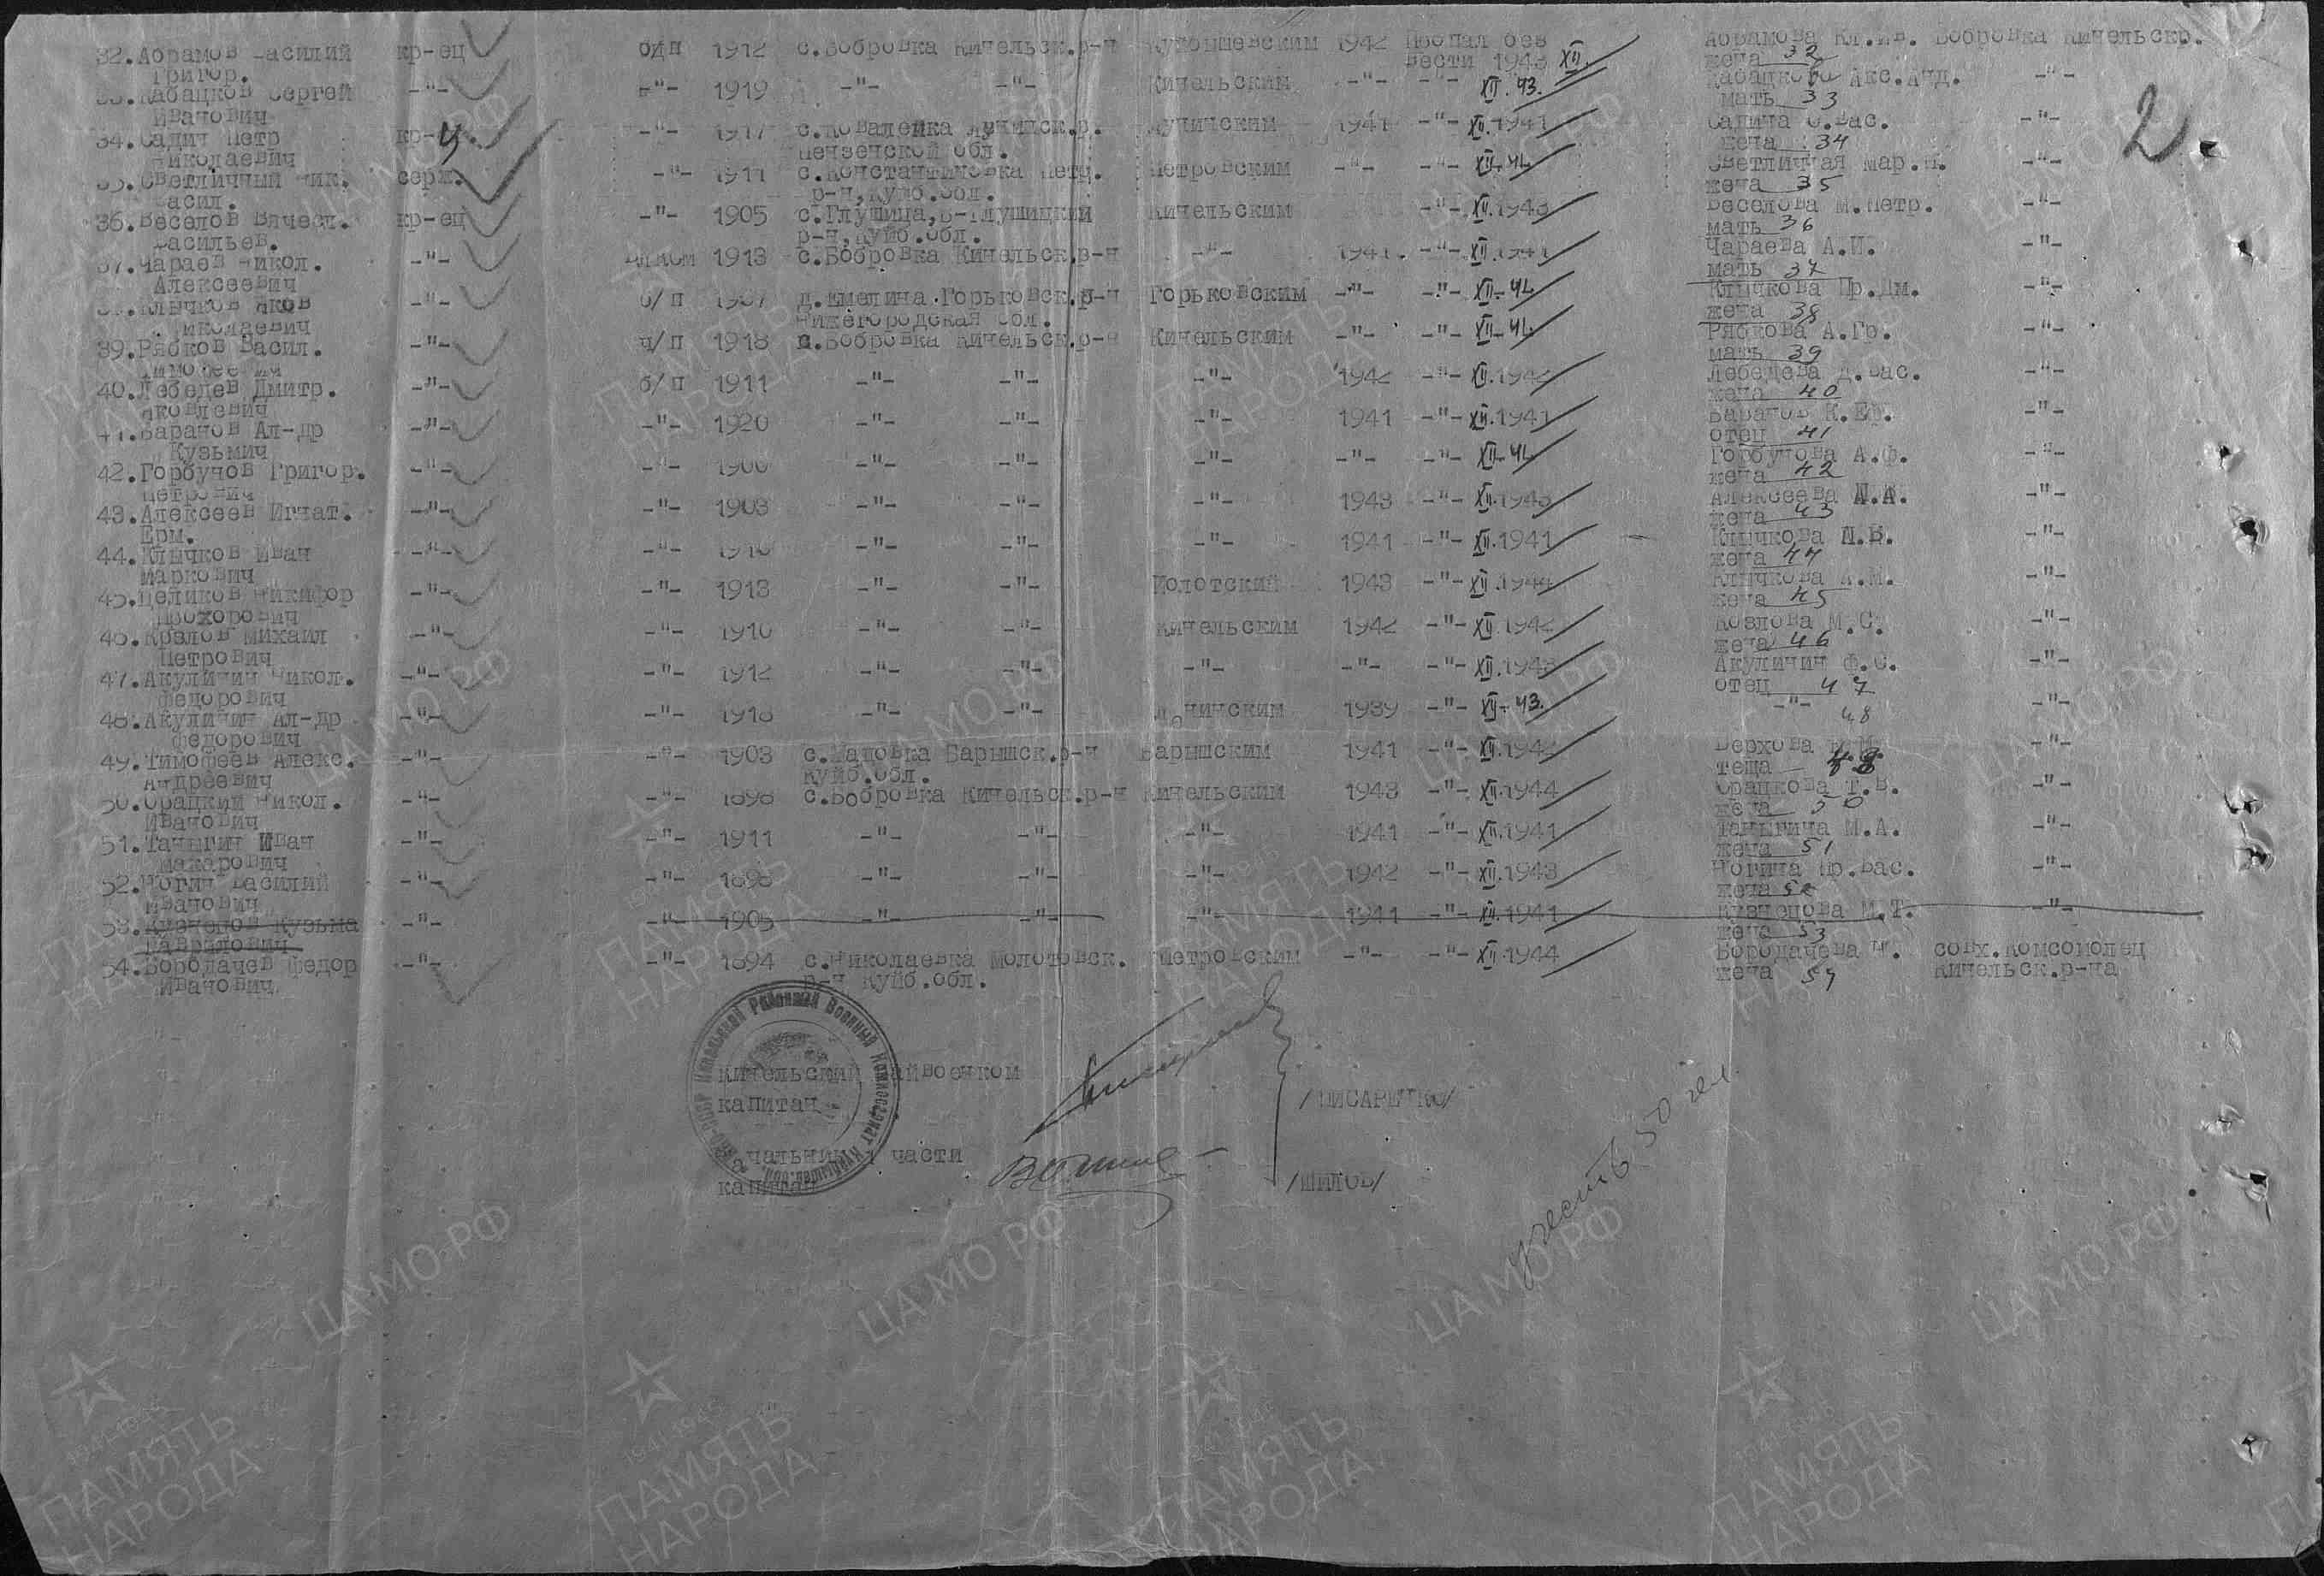 32.Абрамов Василий кр-ец б/п 1912 с.Бобровка Кинельск.р-н Куйбышевским 1942 Пропал без Абрамова Кл.Ив. Бобровка Кинельскр.
Григор. вести 1943 XII. жена 32
33.Кабацков Сергей -"- -"- 1919 -"- -"- Кинельским -"- -"- XII.43. Кабацкова Акс.Анд. -"-
Иванович мать 33
34.Садич Петр кр-ц -"- 1917 с.Ковалейка Лунинск.р. Лунинским 1941 -"- XII.1941 Садича Вас. -"-
Николаевич Пензенской обл. жена 34
35.Светличный Ник. серж. -"- 1911 с.Константиновка Петр. Петровским -"- -"- XII-41. Светличная Мар. -"-
Васил. р-н,Куйб.обл. жена 35
36.Веселов Вячесл. кр-ец -"- 1905 с.Глушица,Б-Глушицкий Кинельским -"- XII.1943 Веселова М.Петр. -"-
Васильев. р-н,Куйб.обл. мать 36
37.Чараев Никол. -"- 1913 с.Бобровка Кинельск.р-н -"- 1941. -"- XII.1941 Чараева А.И. -"-
Алексеевич мать 37
38.Клычков Яков -"- б/п 1907 д.Емелина.Горьковск.р-н Горьковским -"- -"- XII-41. Клычкова Пр.Дм. -"-
Николаевич Нижегородская обл. жена 38
39.Рябков Васил. -"- ч/п 1918 с.Бобровка Кинельск.р-н Кинельским -"- -"- XII-41. Рябкова А.Гр. -"-
Тимофеевич мать 39
40.Лебедев Дмитр. -"- б/п 1911 -"- -"- -"- 1942 -"- XII.1942 Лебедева Д.Вас. -"-
Яковлевич жена 40
41.Баранов Ал-др -"- -"- 1920 -"- -"- -"- 1941 -"- XII.1941 Баранов К.Ег. -"-
Кузьмич отец 41
42.Горбунов Григор. -"- -"- 1900 -"- -"- -"- -"- -"- XII-41. Горбунова А.Ф. -"-
Петрович жена 42
43.Алексеев Игнат. -"- -"- 1903 -"- -"- -"- 1943 -"- XII.1943 Алексеева А. -"-
Ерм. жена 43
44.Клычков Иван -"- -"- 1910 -"- -"- -"- 1941 -"- XII.1941 Клычкова В. -"-
Маркович жена 44
45.Целиков Никифор -"- -"- 1913 -"- -"- 1943 -"- XII.1944 Клычкова М. -"-
Прохорович жена 45
46.Козлов Михаил -"- -"- 1910 -"- -"- Кинельским 1942 -"- XII.1942 Козлова М.С. -"-
Петрович жена 46
47.Акулинин Никол. -"- -"- 1912 -"- -"- -"- -"- -"- XII.1943 Акулинин Ф.С. -"-
Федорович отец 47
48.Акулинин Ал-др -"- -"- 1918 -"- -"- 1939 -"- XII-43. -"- -"-
Федорович 48
49.Тимофеев Алекс. -"- -"- 1903 с.Мадовка Барышск.р-н Барышским 1941 -"- XII.1942 Верхова -"-
Андреевич Куйб.обл. теща
50.Срацкий Никол. -"- -"- 1898 с.Бобровка Кинельск.р-н Кинельским 1943 -"- XII.1944 Срацкова Т.В. -"-
Иванович жена 50
51.Таныгин Иван -"- -"- 1911 -"- -"- -"- 1941 -"- XII.1941 Таныгина М.А. -"-
Макарович жена 51
52.Ногин Василий -"- -"- 1898 -"- -"- -"- 1942 -"- XII.1943 Ногина Пр.Вас. -"-
Иванович жена 52
53.Кузнецов Кузьма -"- -"- 1905 -"- -"- -"- 1941 -"- XII.1941 Кузнецова М.Т. -"-
Гаврилович жена 53
54.Бородачев Федор -"- -"- 1894 с.Николаевка Молотовск. Петровским -"- -"- XII.1944 Бородачева совх.Комсомолец
Иванович р-н Куйб.обл. жена 54 Кинельск.р-на
2.
Кинельский Районный Военный Комиссариат
Кинельский райвоенком
капитан /ПИСАРЕНКО/
Начальник 1 части
капитан /ШИЛОВ/
учесть 50 чел.
ПАМЯТЬ НАРОДА
1941-1945
ЦАМО.РФ